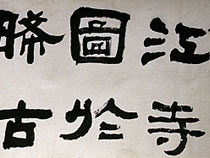 江寺
圖於
晞古